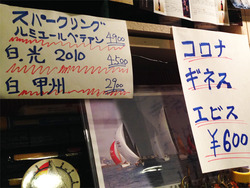 スパークリング
ルミエールペティアン 4900
白.光 2010 4600
白 甲州 2900
コロナ
ギネス
エビス
¥600